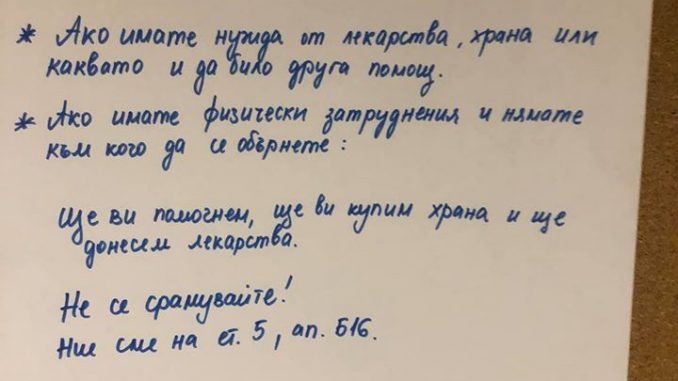 * Ако имате нужда от лекарства, храна или
каквато и да било друга помощ.
* Ако имате физически затруднения и нямате
към кого да се обърнете:
Ще ви помогнем, ще ви купим храна и ще
донесем лекарства.
Не се срамувайте!
Ние сме на ет. 5, ап. Б16.